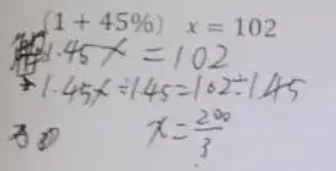 (1 + 45%) x = 102
解 1.45x = 102
1.45x÷1.45=102÷1.45
x=200/3